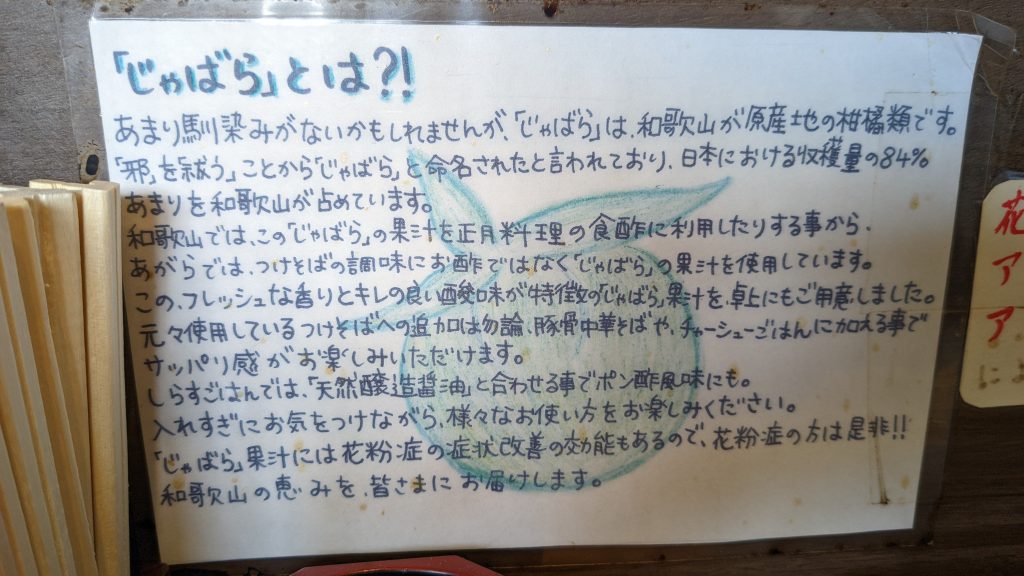 「じゃばら」とは?!
あまり馴染みがないかもしれませんが、「じゃばら」は、和歌山が原産地の柑橘類です。
「邪」を祓う」ことから「じゃばら」と命名されたと言われており、日本における収穫量の84%
あまりを和歌山が占めています。
和歌山では、この「じゃばら」の果汁を正月料理の食酢に利用したりする事から、
あがらでは、つけそばの調味にお酢ではなく「じゃばら」の果汁を使用しています。
この、フレッシュな香りとキレの良い酸味が特徴の「じゃばら」果汁を、卓上にもご用意しました。
元々使用しているつけそばへの追加は勿論、豚骨中華そばや、チャーシューごはんに加える事で
サッパリ感がお楽しみいただけます。
しらすごはんでは、「天然醸造醤油」と合わせる事でポン酢風味にも。
入れすぎにお気をつけながら、様々なお使い方をお楽しみください。
「じゃばら」果汁には花粉症の症状改善の効能もあるので、花粉症の方は是非!!
和歌山の恵みを、皆さまにお届けします。
花
ア
ア
に